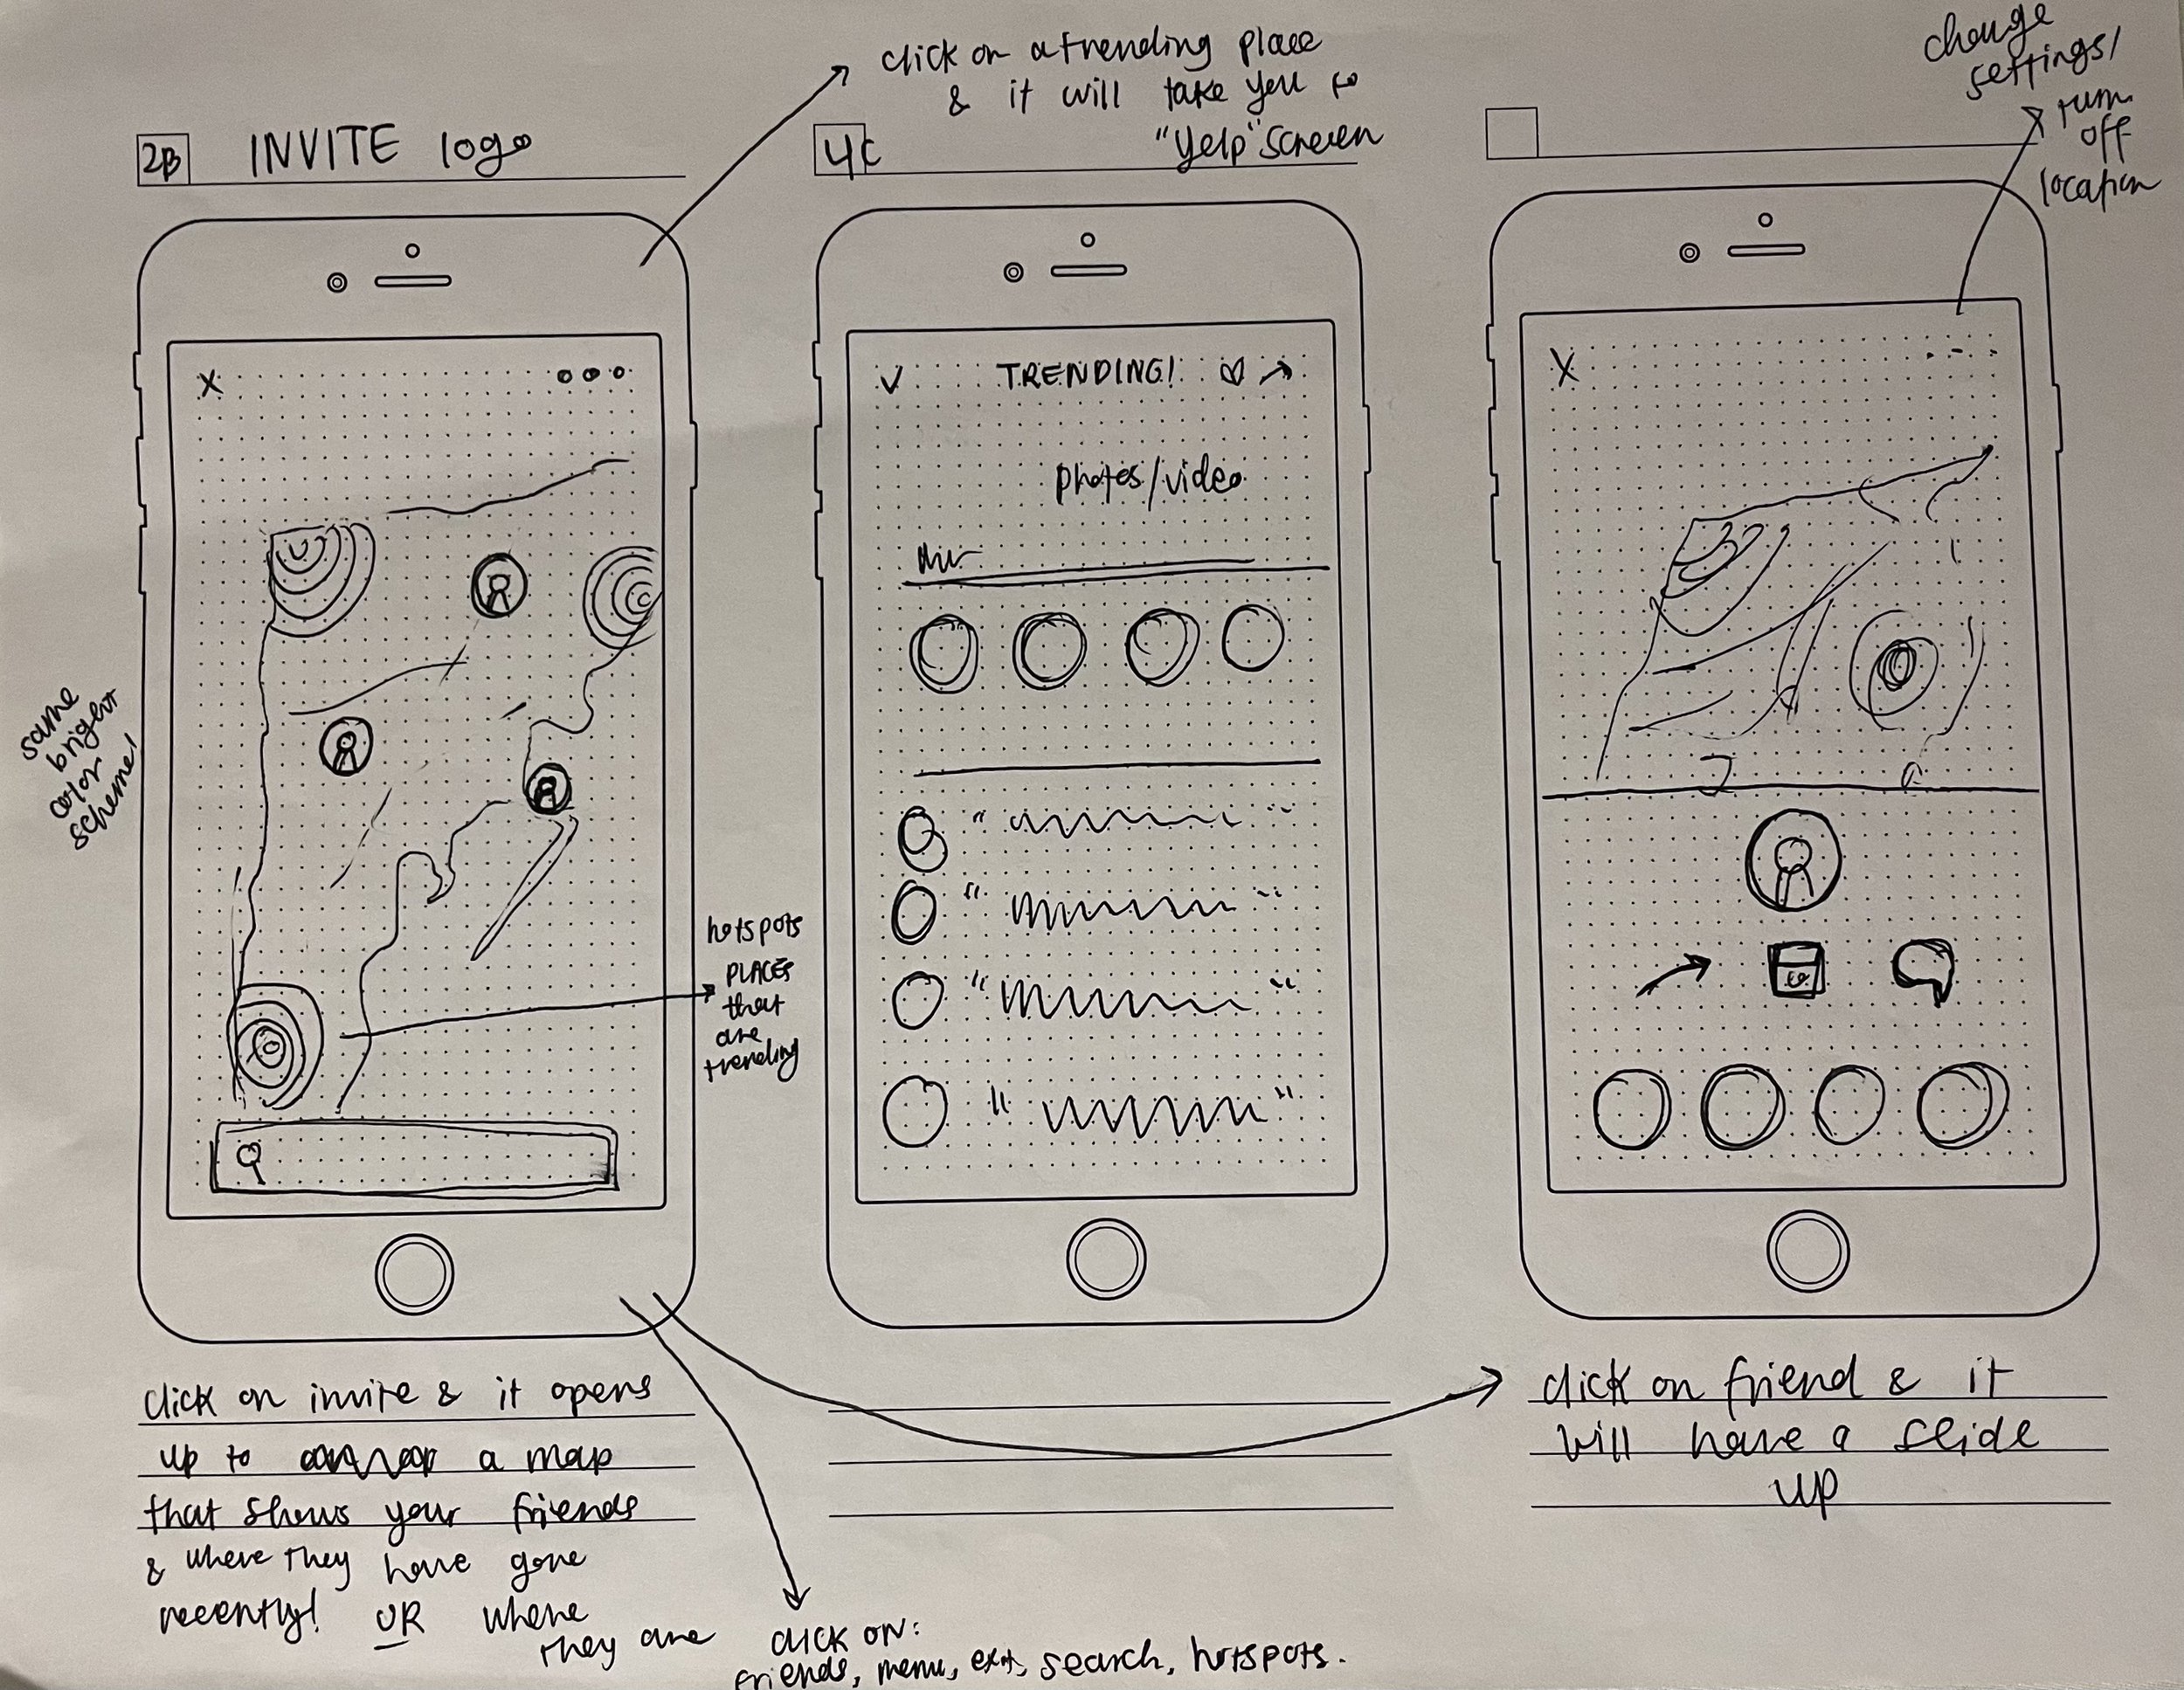 click on a trending place
& it will take you to
"Yelp" screen
change
settings/
turn
off
location
2B INVITE logo
4C
X
TRENDING!
photos/video
X
same
bright
color
scheme!
hotspots
PLACES
that
are
trending
click on invite & it opens
up to a map
that shows your friends
& where they have gone
recently! OR where
they are
click on friend & it
will have a slide
up
CLICK ON:
friends, menu, exit, search, hotspots.